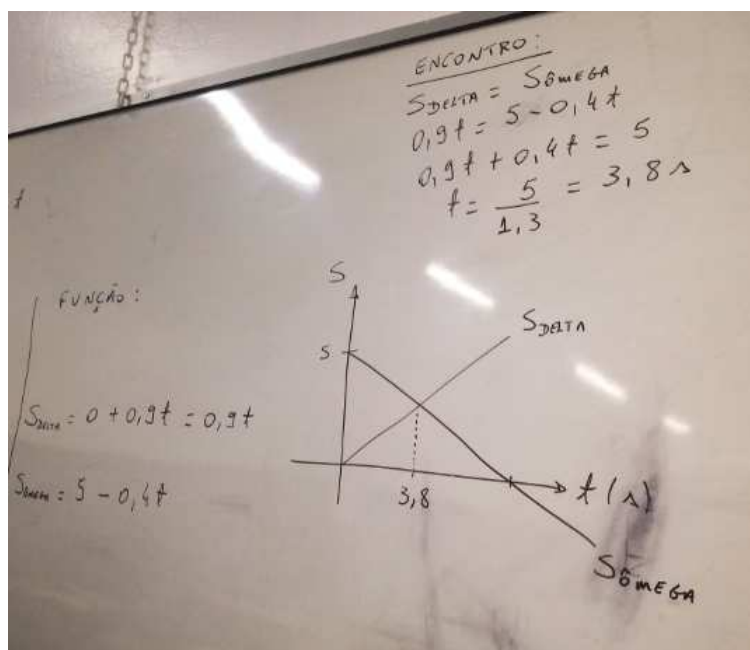 ENCONTRO:
SDELTA = SÔMEGA
0,9t = 5 - 0,4t
0,9t + 0,4t = 5
t = 5/1,3 = 3,8 s
t
FUNÇÃO:
SDELTA = 0 + 0,9t = 0,9t
SÔMEGA = 5 - 0,4t
S
5
SDELTA
3,8
t (s)
SÔMEGA